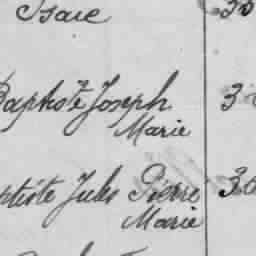 Isaie 30
Baptiste Joseph 3
Marie
ptiste Jules Pierre 30
Marie